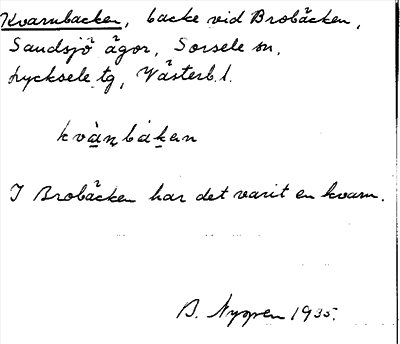 Kvarnbacken, backe vid Brobäcken,
Sandsjö ägor, Sorsele sn,
Lycksele tg, Västerb. l.
kvàn̥bàken
I Brobäcken har det varit en kvarn.
B. 1935.